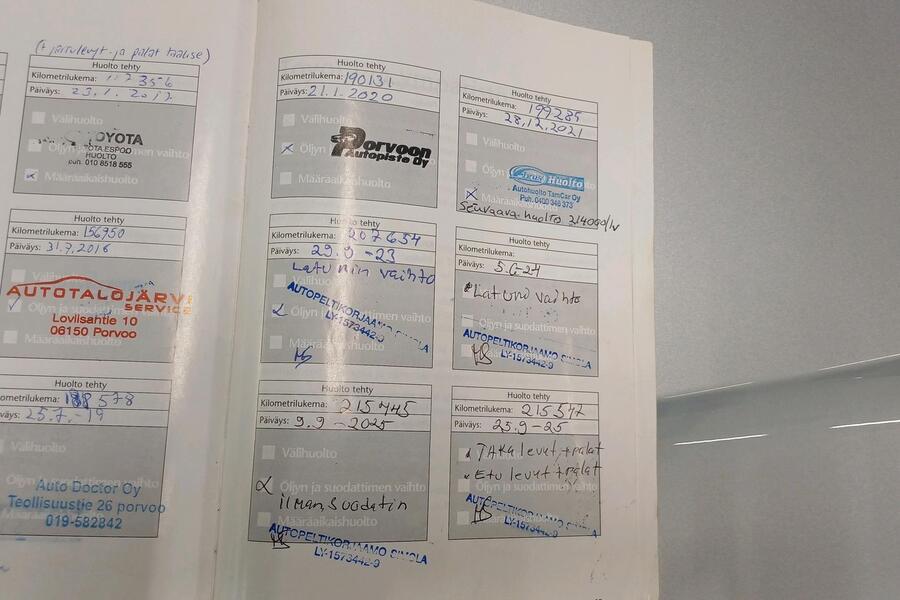 (+ jarrulevyt ja palat taakse)
Huolto tehty
Kilometrilukema:
Päiväys: 23.1.2017
Välihuolto
TOYOTA
TOYOTA ESPOO
HUOLTO
puh. 010 8518 555
Öljyn ja suodattimen vaihto
x Määräaikaishuolto
Huolto tehty
Kilometrilukema: 156950
Päiväys: 31.7.2018
Välihuolto
AUTOTALOJÄRVI
SERVICE
Öljyn ja suodattimen vaihto
Lovilsahtie 10
06150 Porvoo
Määräaikaishuolto
Huolto tehty
Kilometrilukema: 188578
Päiväys: 25.7.-19
Välihuolto
Öljyn ja suodattimen vaihto
Auto Doctor Oy
Teollisuustie 26 porvoo
019-582842
Määräaikaishuolto
Huolto tehty
Kilometrilukema: 190131
Päiväys: 21.1.2020
Välihuolto
x Öljyn
Porvoon
Autopiste Oy
Määräaikaishuolto
Huolto tehty
Kilometrilukema: 199285
Päiväys: 28.12.2021
Välihuolto
Öljyn
Huolto
Autohuolto TamCar Oy
Puh. 0400 346 373
x
Seuraava huolto 214000/1v
Huolto tehty
Kilometrilukema: 207654
Päiväys: 29.9-23
Laturin vaihto
Välihuolto
Öljyn ja suodattimen vaihto
AUTOPELTIKORJAAMO SIMOLA
LY-1573442-9
Määräaikaishuolto
Huolto tehty
Kilometrilukema:
Päiväys: 5.6-24
Laturid vaihto
Öljyn ja suodattimen vaihto
AUTOPELTIKORJAAMO SIMOLA
LY-1573442-9
Huolto tehty
Kilometrilukema: 215445
Päiväys: 9.9-2025
Välihuolto
Öljyn ja suodattimen vaihto
ilman suodatin
Määräaikaishuolto
AUTOPELTIKORJAAMO SIMOLA
LY-1573442-9
Huolto tehty
Kilometrilukema: 215547
Päiväys: 25.9-25
TAKA levyt + palat
Etu levyt + palat
AUTOPELTIKORJAAMO SIMOLA
LY-1573442-9